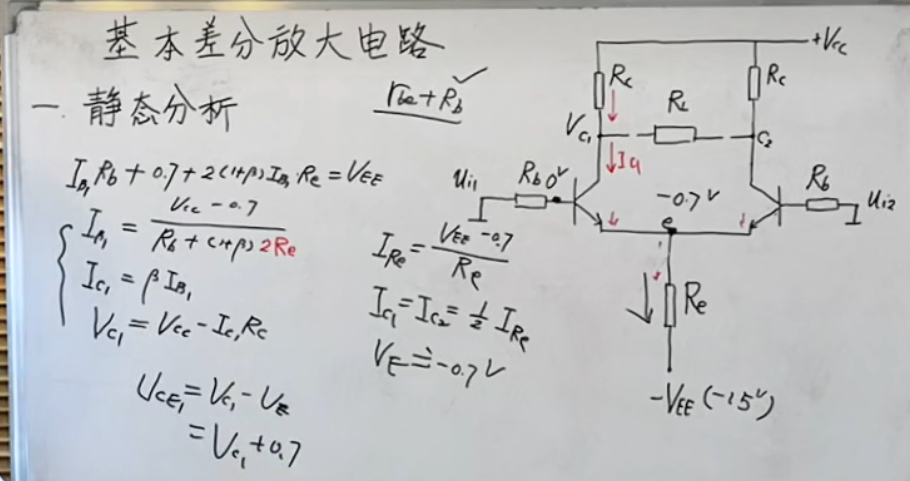 基本差分放大电路
一 静态分析
rbe+Rb ✓
IB1Rb+0.7+2(1+β)IB1Re=VEE
IB1=(Vcc-0.7)/(Rb+(1+β)2Re)
IC1=βIB1
VC1=Vcc-Ic1Rc
UCE1=VC1-UE
=VC1+0.7
IRe=(VEE-0.7)/Re
IC1=IC2=½IRe
VE≐-0.7V
+Vcc
Rc
Rc
RL
VC1
C2
IC1
ui1
Rb
0V
-0.7V
e
Rb
ui2
Re
-VEE(-15V)